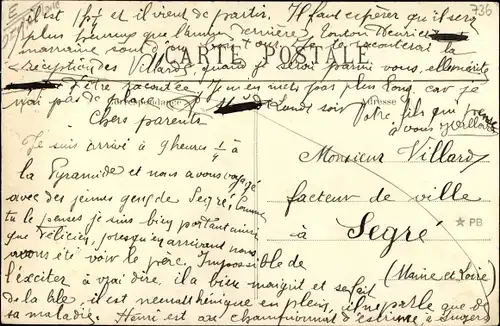 il est 1h½ et il vient de partir. Il faut espérer qu'il sera
plus heureux que l'année dernière. tonton Henri et
marraine sont
raconterai la
CARTE POSTALE
réception des Villards, quand je serai parmi vous, elle mérite
d'être racontée. Je n'en mets pas plus long, car je
n'ai pas de place. Votre fils qui pense
à vous
Correspondance
Adresse
Chers parents
Je suis arrivé à 9 heures ¼ à
la Pyramide et nous avons voyagé
avec des jeunes gens de Segré. Comme
tu le penses je suis bien portant ainsi
que Félicien, lorsqu'en arrivant nous
avons été voir le père. Impossible de
l'exciter à vrai dire, il a bien maigri et se fait
de la bile, il est neurasthénique en plein, il ne parle que de
sa maladie. Henri est au championnat d'escrime à Angers
Monsieur Villard
facteur de ville
à Segré
(Maine et Loire)
PB
736